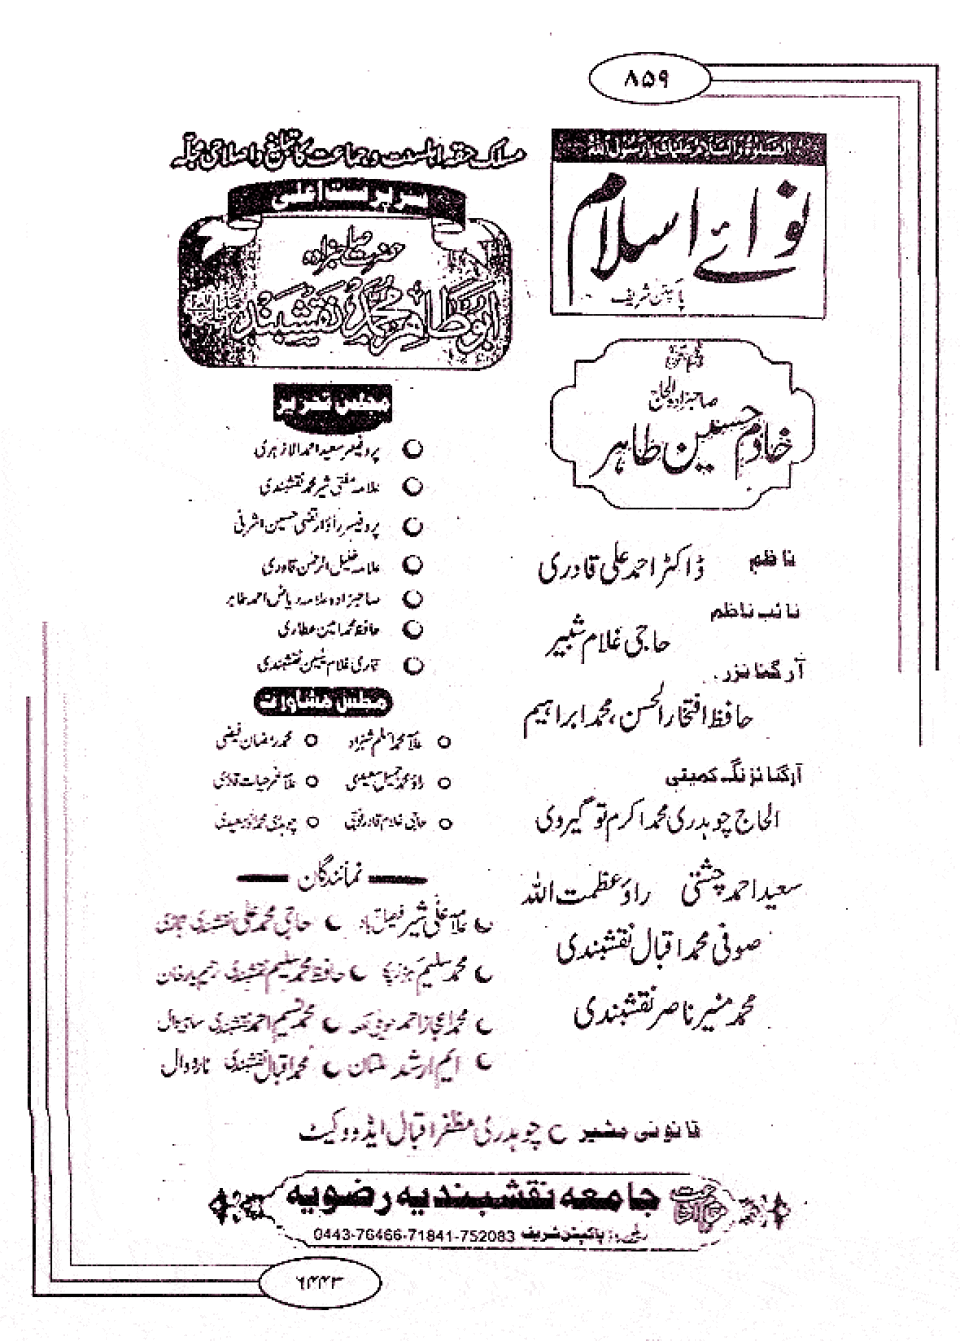 ۸۵۹
مسلک حقہ اہلسنت و جماعت کا تبلیغی و اصلاحی مجلہ
نوائے اسلام
پاکپتن شریف
حضرت صاحبزادہ
ابوطاہر محمد نقشبند
صاحبزادہ الحاج
خادم حسین طاہر
مجلس تحریر
پروفیسر سعید احمد الازہری
علامہ مفتی شیر محمد نقشبندی
پروفیسر راؤ ارتضی حسین اشرفی
علامہ خلیل الرحمن قادری
صاحبزادہ علامہ ریاض احمد طاہر
حافظ محمد امین عطاری
قاری غلام یٰسین نقشبندی
مجلس مشاورت
علامہ محمد اسلم شہزاد محمد رمضان فیضی
راؤ محمد جمیل سعیدی علامہ خضر حیات قادری
حاجی غلام قادر چوہدری محمد
نمائندگان
علامہ علی شیر فیصل آباد حاجی محمد علی نقشبندی
محمد سلیم حافظ محمد سلیم نقشبندی رحیم یار خان
محمد اعجاز احمد محمد نسیم احمد نقشبندی ساہیوال
ایم ارشد ملتان محمد اقبال نقشبندی نارووال
ناظم
ڈاکٹر احمد علی قادری
نائب ناظم
حاجی غلام شبیر
آرگنائزر
حافظ افتخار الحسن، محمد ابراہیم
آرگنائزنگ کمیٹی
الحاج چوہدری محمد اکرم توگیروی
سعید احمد چشتی راؤ عظمت اللہ
صوفی محمد اقبال نقشبندی
محمد منیر ناصر نقشبندی
قانونی مشیر چوہدری مظفر اقبال ایڈووکیٹ
جامعہ نقشبندیہ رضویہ
پاکپتن شریف 0443-76466-71841-752083
۶۴۴۳